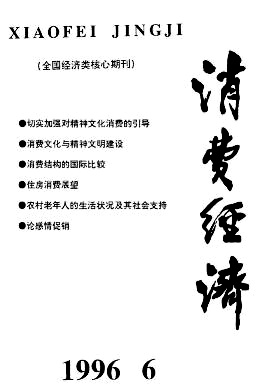 XIAOFEI JINGJI
(全国经济类核心期刊)
消费经济
●切实加强对精神文化消费的引导
●消费文化与精神文明建设
●消费结构的国际比较
●住房消费展望
●农村老年人的生活状况及其社会支持
●论感情促销
1996 6